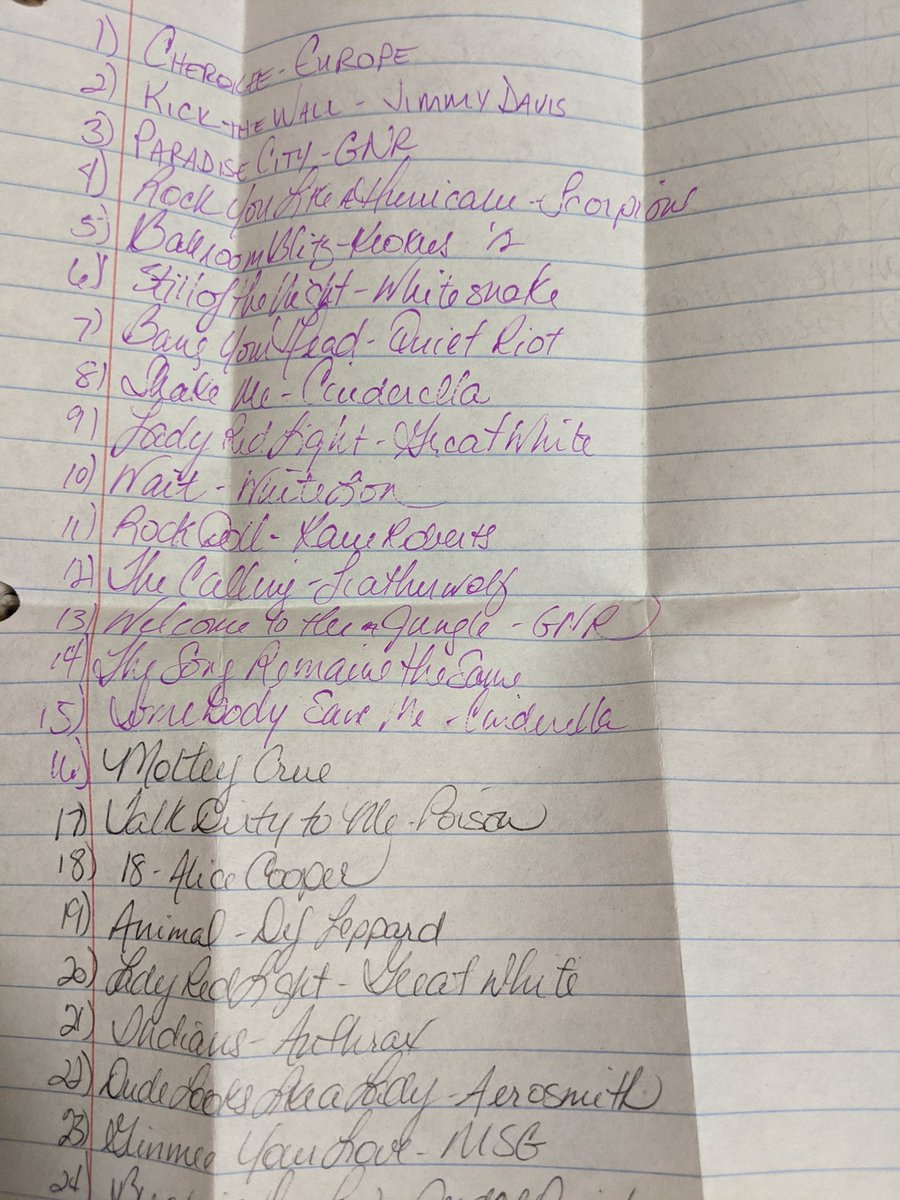 1) CHEROKEE - EUROPE
2) KICK-THE WALL - JIMMY DAVIS
3) PARADISE CITY - GNR
4) Rock You Like A Hurricane - Scorpions
5) Ballroom Blitz - Krokus '2
6) Still of the Night - Whitesnake
7) Bang Your Head - Quiet Riot
8) Shake Me - Cinderella
9) Lady Red Light - Great White
10) Wait - White Lion
11) Rock Doll - Kane Roberts
12) The Calling - Leatherwolf
13) Welcome to the Jungle - GNR
14) The Song Remains the Same
15) Somebody Save Me - Cinderella
16) Mottey Crue
17) Talk Dirty to Me - Poison
18) 18 - Alice Cooper
19) Animal - Def Leppard
20) Lady Red Light - Great White
21) Indians - Anthrax
22) Dude Looks Like a Lady - Aerosmith
23) Gimmee Your Love - MSG
24)